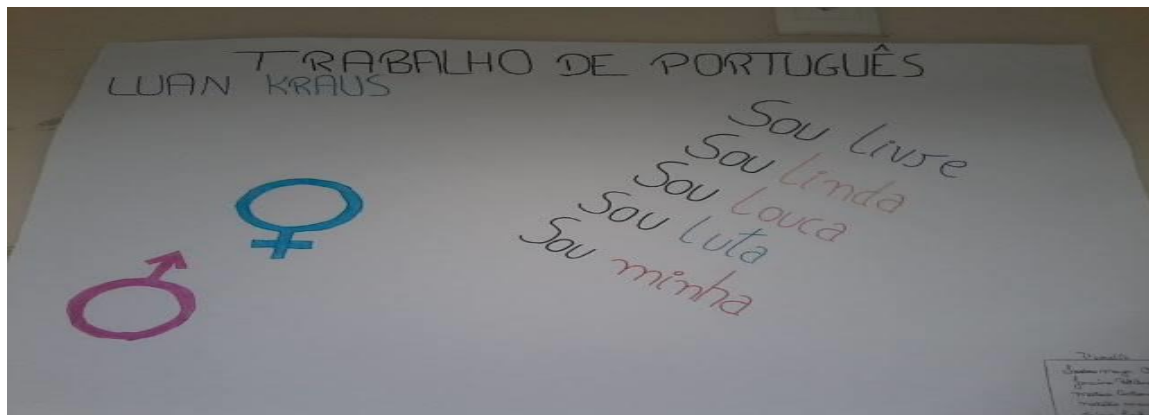 TRABALHO DE PORTUGUÊS
LUAN KRAUS
Sou livre
Sou linda
Sou louca
Sou luta
Sou minha